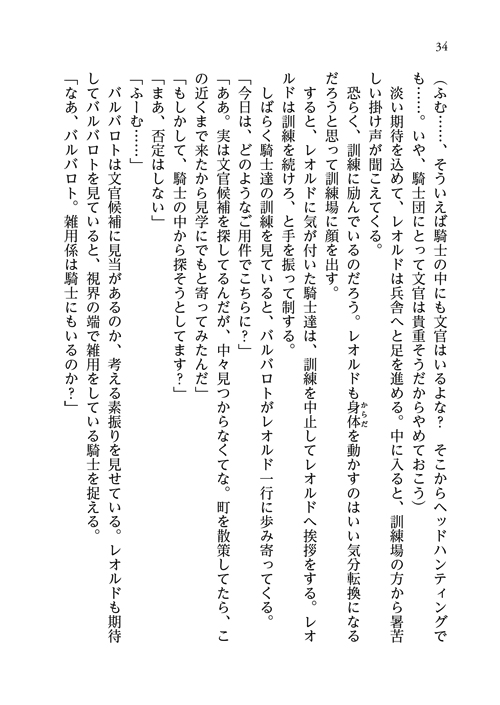 34
(ふむ……、そういえば騎士の中にも文官はいるよな？　そこからヘッドハンティングで
も……。いや、騎士団にとって文官は貴重そうだからやめておこう)
　淡い期待を込めて、レオルドは兵舎へと足を進める。中に入ると、訓練場の方から暑苦
しい掛け声が聞こえてくる。
　恐らく、訓練に励んでいるのだろう。レオルドも身体を動かすのはいい気分転換になる
からだ
だろうと思って訓練場に顔を出す。
　すると、レオルドに気が付いた騎士達は、訓練を中止してレオルドへ挨拶をする。レオ
ルドは訓練を続けろ、と手を振って制する。
　しばらく騎士達の訓練を見ていると、バルバロトがレオルド一行に歩み寄ってくる。
「今日は、どのようなご用件でこちらに？」
「ああ。実は文官候補を探してるんだが、中々見つからなくてな。町を散策してたら、こ
の近くまで来たから見学にでもと寄ってみたんだ」
「もしかして、騎士の中から探そうとしてます？」
「まあ、否定はしない」
「ふーむ……」
　バルバロトは文官候補に見当があるのか、考える素振りを見せている。レオルドも期待
してバルバロトを見ていると、視界の端で雑用をしている騎士を捉える。
「なあ、バルバロト。雑用係は騎士にもいるのか？」